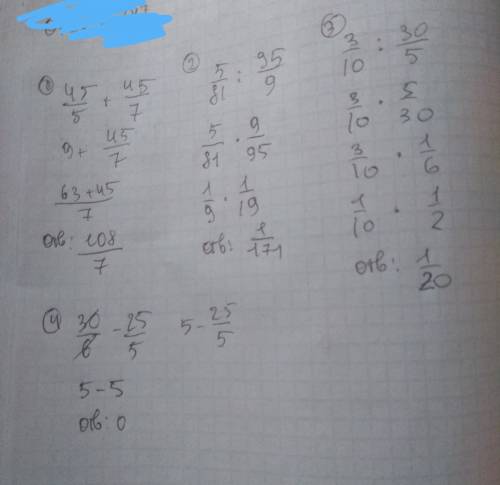 ① 45/5 + 45/7
9 + 45/7
63+45/7
отв: 108/7
② 5/81 : 95/9
5/81 · 9/95
1/9 · 1/19
отв: 1/171
③ 3/10 : 30/5
3/10 · 5/30
3/10 · 1/6
1/10 · 1/2
отв: 1/20
④ 30/6 - 25/5 5 - 25/5
5 - 5
отв: 0